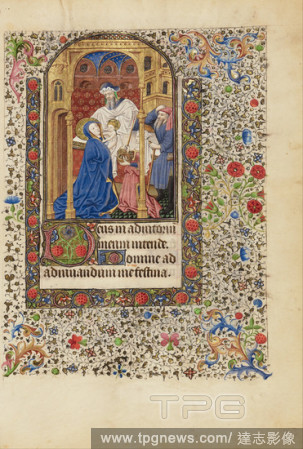 Deus in adiutoriu
meum intende.
Domine ad
adiuuandum me festina.
TPG
www.tpgnews.com / 達志影像